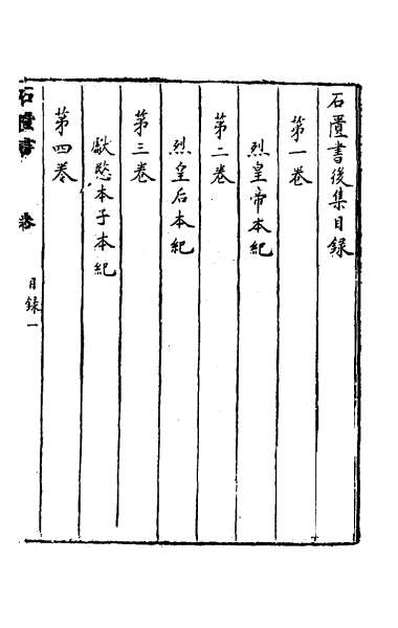 石匱書後集目錄
第一卷
烈皇帝本紀
第二卷
烈皇后本紀
第三卷
獻愍本子本紀
第四卷
石匱書 卷 目錄一